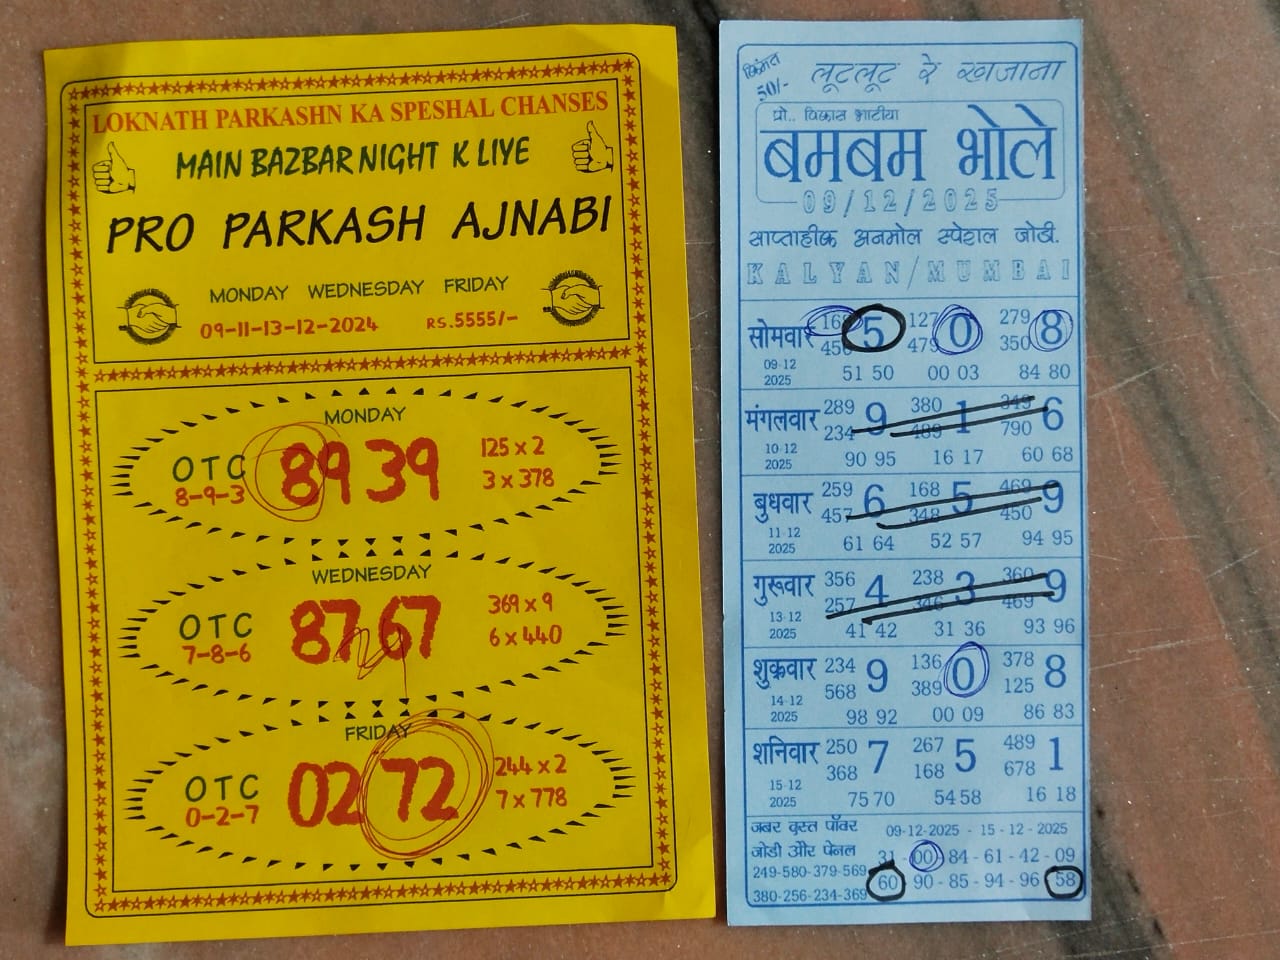 LOKNATH PARKASHN KA SPESHAL CHANSES
MAIN BAZBAR NIGHT K LIYE
PRO PARKASH AJNABI
MONDAY WEDNESDAY FRIDAY
09-11-13-12-2024 RS.5555/-
MONDAY
OTC 89 39 125 x 2
8-9-3 3 x 378
WEDNESDAY
OTC 87 67 369 x 9
7-8-6 6 x 440
FRIDAY
OTC 02 72 244 x 2
0-2-7 7 x 778
किंमत
50/-
लूटलूट रे खजाना
प्रो.. विकास भाटीया
बमबम भोले
09/12/2025
साप्ताहीक अनमोल स्पेशल जोडी.
KALYAN/MUMBAI
सोमवार 168 5 127 0 279 8
456 479 350
09-12 2025 51 50 00 03 84 80
मंगलवार 289 9 380 1 349 6
234 489 790
10-12 2025 90 95 16 17 60 68
बुधवार 259 6 168 5 469 9
457 348 450
11-12 2025 61 64 52 57 94 95
गुरूवार 356 4 238 3 360 9
257 346 469
13-12 2025 41 42 31 36 93 96
शुक्रवार 234 9 136 0 378 8
568 389 125
14-12 2025 98 92 00 09 86 83
शनिवार 250 7 267 5 489 1
368 168 678
15-12 2025 75 70 54 58 16 18
जबर दस्त पॉवर 09-12-2025 - 15-12-2025
जोडी और पेनल 31 - 00 - 84 - 61 - 42 - 09
249-580-379-569
380-256-234-369 60 - 90 - 85 - 94 - 96 - 58